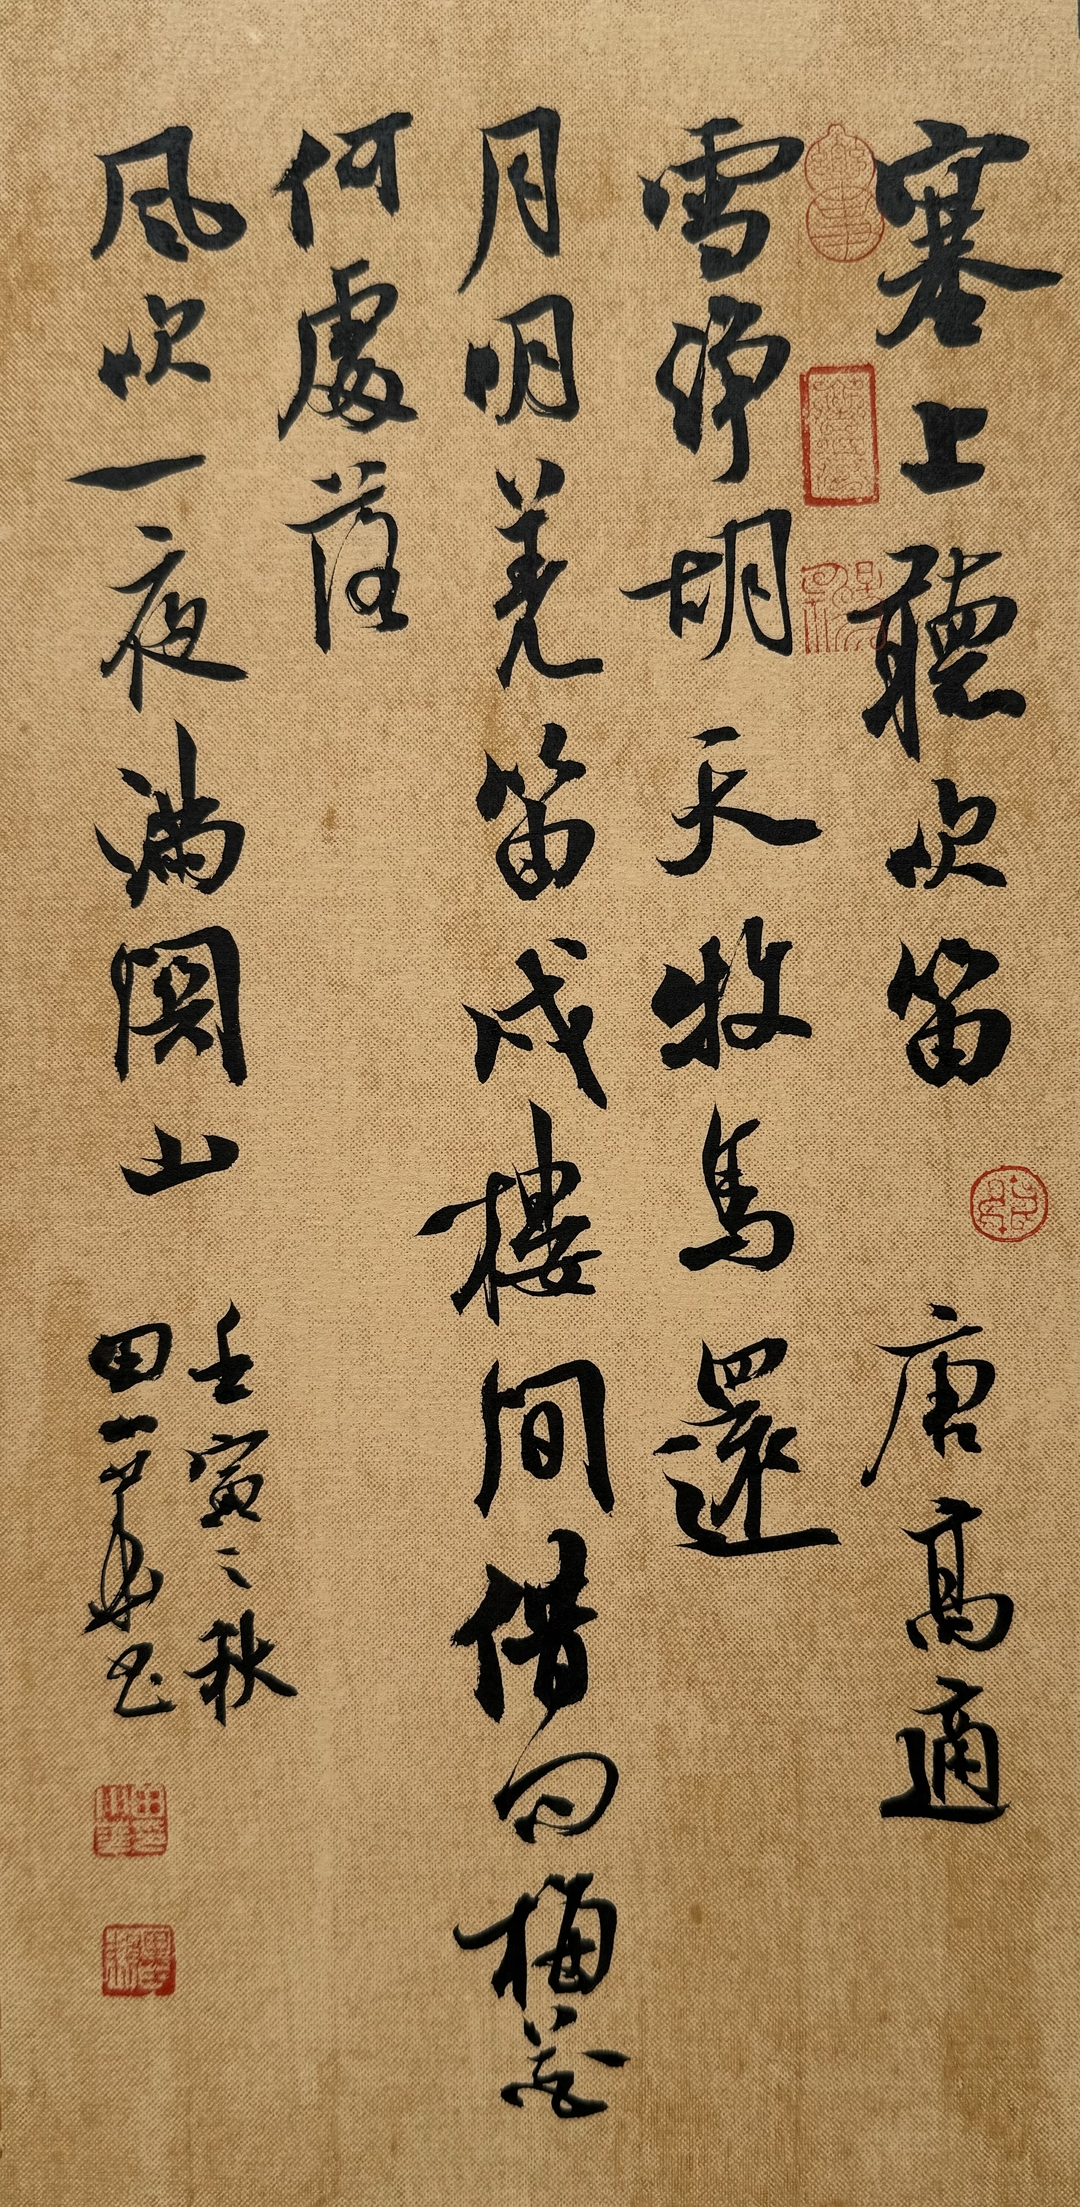 塞上聽吹笛 唐 高適
雪淨胡天牧馬還
月明羌笛戍樓間借問梅花
何處落
風吹一夜滿関山
壬寅之秋
田一